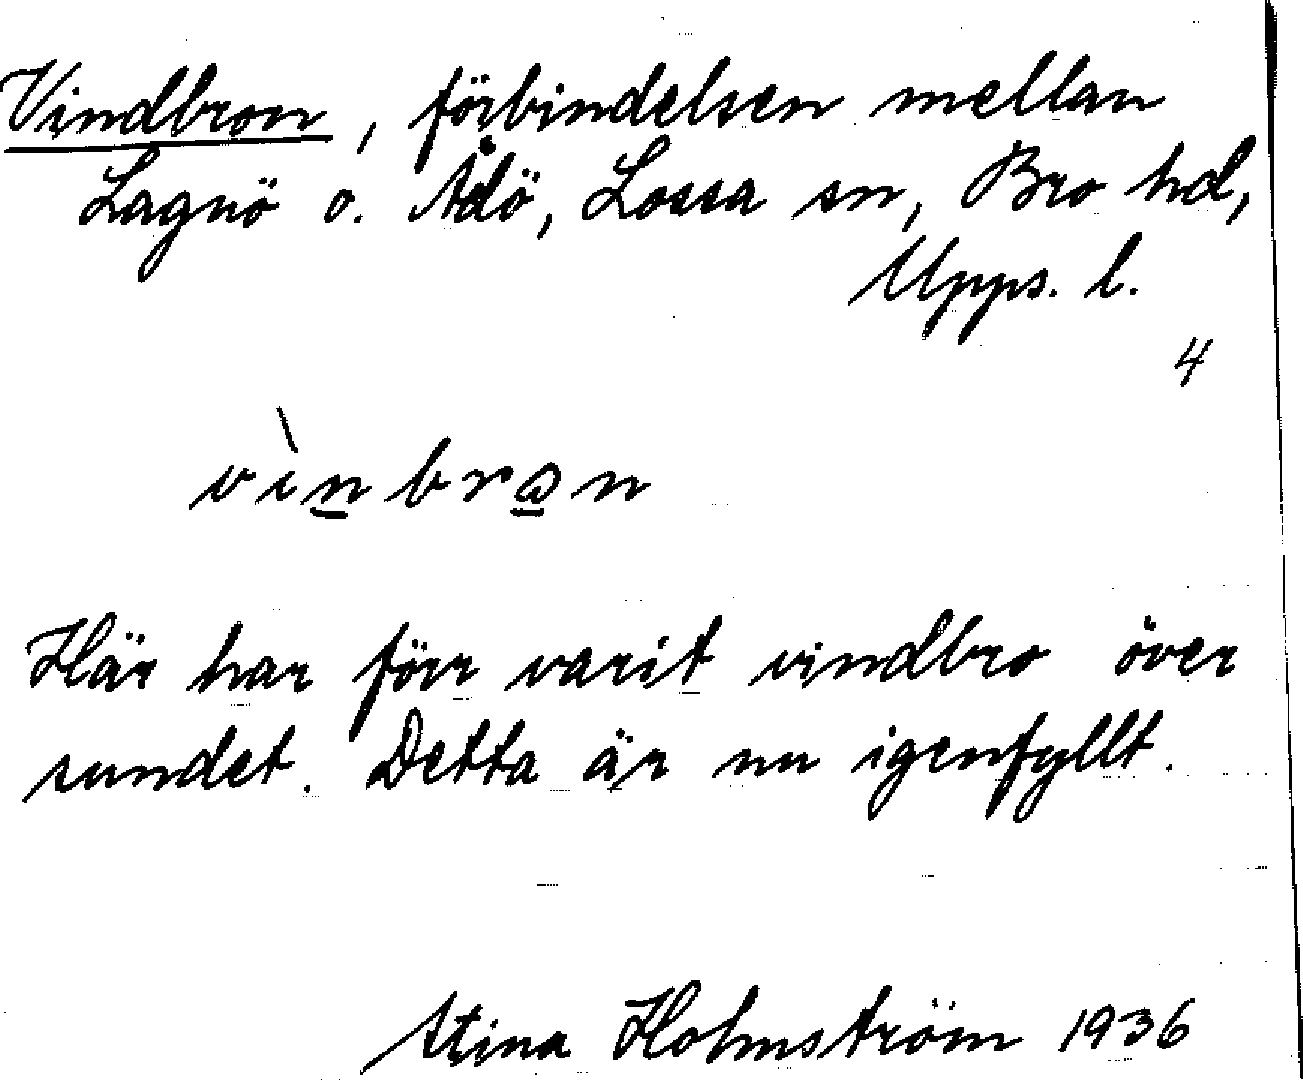 Vindbron, förbindelsen mellan
Lagnö o. Ådö, Lossa sn, Bro hd,
Upps. l.
4
vìnbrɷn
Här har förr varit vindbro över
sundet. Detta är nu igenfyllt.
Stina Holmström 1936